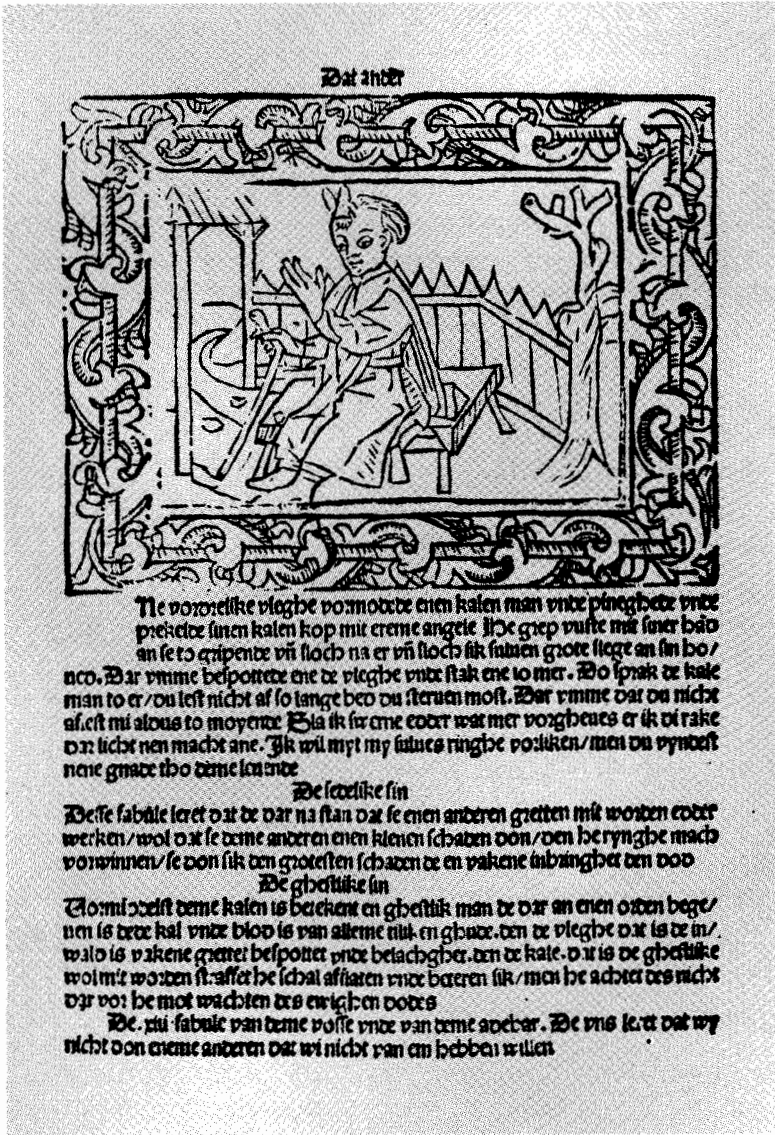 Dat ander
Ne vordretlike vleghe vormodede enen kalen man vnde pineghede vnde
prekelde sinen kalen kop mit ereme angele He grep vuste mit siner hād
an se to gripende vñ sloch na er vñ sloch sik suluen grote slege an sin ho/
ued. Dar vmme bespottede ene de vleghe vnde stak ene io mer. Do sprak de kale
man to er/du lest nicht af so lange bed du steruen most. Dar vmme dat du nicht
aflest mi aldus to moyende Sla ik sereme edder wat mer vorgheues er ik di rake
dar licht nen macht ane. Jk wil myt my sulues ringhe vorliken/men du vyndest
nene gnade tho deme leuende
De sedelike sin
Desse fabule leret dat de dar na stan dat se enen anderen gretten mit worden edder
werken/wol dat se deme anderen enen klenen schaden don/den he rynghe mach
vorwinnen/se don sik den grotesten schaden de en vakene inbringhet den dod
De ghestlike sin
Vormiddelst deme kalen is betekent en ghestlik man de dar an enen orden bege/
uen is dede kal vnde blod is van alleme ghude. den de vleghe dat is de
is vakene grettet bespottet vnde belachghet. den de kale. dat is de ghestlike
wol mit worden straffet he schal aflaten vnde beteren sik/men he achtet des nicht
dar vor he mot wachten des ewighen dodes
De. xiii fabule van deme vosse vnde van deme adebar. De vns leret dat wy
nicht don eneme anderen dat wi nicht van em hebben willen